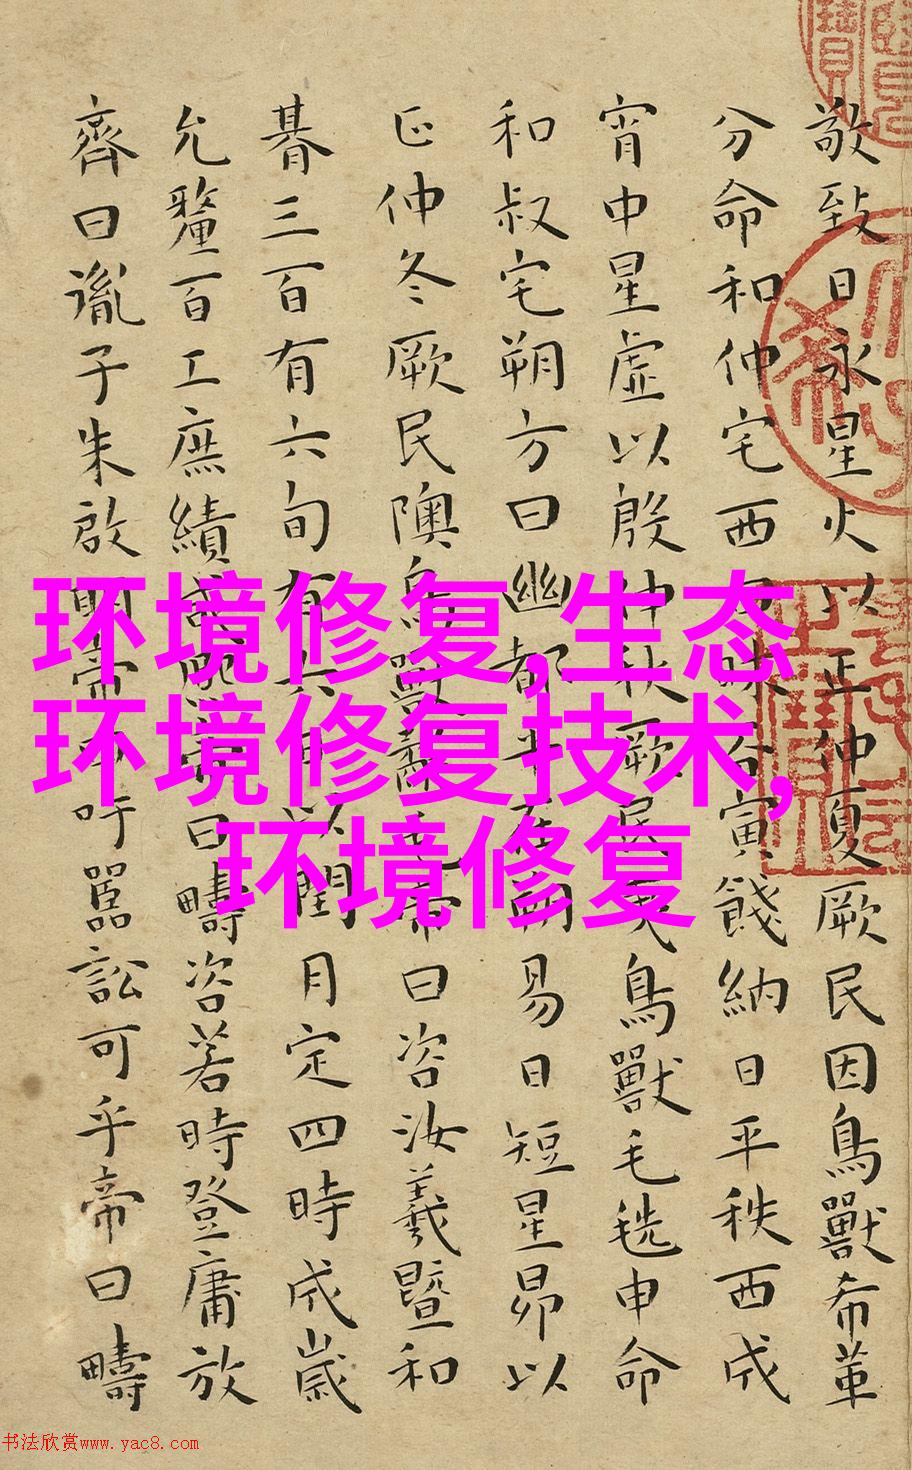 敬致日永星火以正仲夏厥民因鳥獸希革
分命和仲宅西曰昧谷寅餞納日平秩西成
宵中星虛以殷仲秋厥民夷鳥獸毛毨申命
和叔宅朔方曰幽都平在朔易日短星昴以
正仲冬厥民隩鳥獸氄毛帝曰咨汝羲暨和
朞三百有六旬有六日以閏月定四時成歲
允釐百工庶績咸熙帝曰疇咨若時登庸放
齊曰胤子朱啟明帝曰吁嚚訟可乎帝曰疇
环境修复,生态
环境修复技术,
环境修复
书法欣赏www.yac8.com